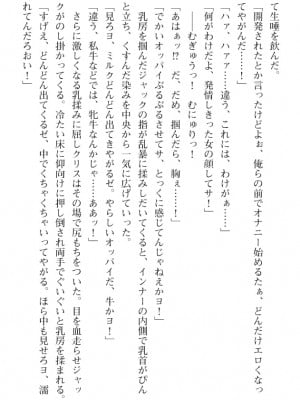 て生唾を飲んだ。
「開発されたとか言ったけどよぉ、俺らの前でオナニー始めるたぁ、どんだけエロくなっ
てやがんだ……！」
「ハァ、ハァァ……違う、これには、わけが…………」
「何がわけだよ、発情しきった女の顔してサ！」
――むぎゅうっ！　むにゅりっ！
「あはぁっ!?　だ、だめ、掴んだら、胸ぇ……！」
「でかいオッパイぷるぷるさせてサ、とっくに感じてんじゃねえかヨ！」
乳房を掴んだジャックの指が乱暴に揉みしだいてくると、インナーの内側で乳首がぴん
と立ち、くすんだ染みを中央から一気に広げていった。
「見ろヨ、ミルクどんどん出てきやがるぜ。やらしいオッパイだ、牛かヨ！」
「違う、私牛などでは、牝牛なんかじゃ……ああッ！」
さらに激しくなる乳揉みに屈しクリスはその場で尻もちをついた。目を血走らせジャッ
クがのし掛かってくる。冷たい床に仰向けに押し倒され両手でぐいぐいと乳房を揉まれる。
「すげえ、どんどん出てくるゼ、中でくちゃくちゃいってやがる。ほら中も見せろヨ、濡
れてんだろおい！」